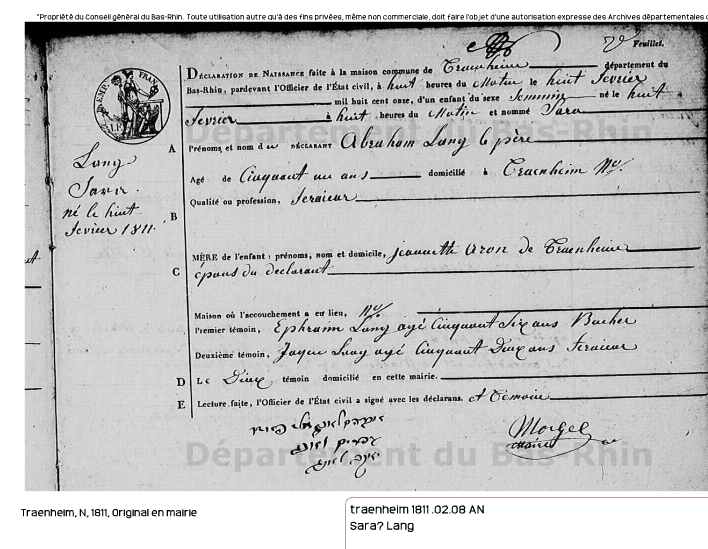 "Propriété du Conseil général du Bas-Rhin. Toute utilisation autre qu'à des fins privées, même non commerciale, doit faire l'objet d'une autorisation expresse des Archives départementales
Feuillet.
DÉCLARATION DE NAISSANCE faite à la maison commune de Traenheim département du
Bas-Rhin, pardevant l'Officier de l'État civil, à huit heures du Matin le huit fevrier
mil huit cent onze, d'un enfant du sexe feminin né le huit
fevrier à huit heures du Matin et nommé Sara
A Prénoms et nom du DÉCLARANT Abraham Lang le père
Agé de Cinquant un ans domicilié à Traenheim
Qualité ou profession, feraieur
Lang
Sara.
né le huit
fevrier 1811.
B
MÈRE de l'enfant : prénoms, nom et domicile, jeannette aron de Traenheim
C épous du declarant
Maison où l'accouchement a eu lieu,
Premier témoin, Ephraim Lang agé Cinquant Six ans
Deuxième témoin, Lang agé Cinquant Deux ans feraieur
D Le Deux témoin domicilié en cette mairie.
E Lecture faite, l'Officier de l'État civil a signé avec les déclarans. et Temoin
Département du Bas-Rhin
Département du Bas-Rhin
Traenheim, N, 1811, Original en mairie
traenheim 1811 .02.08 AN
Sara? Lang